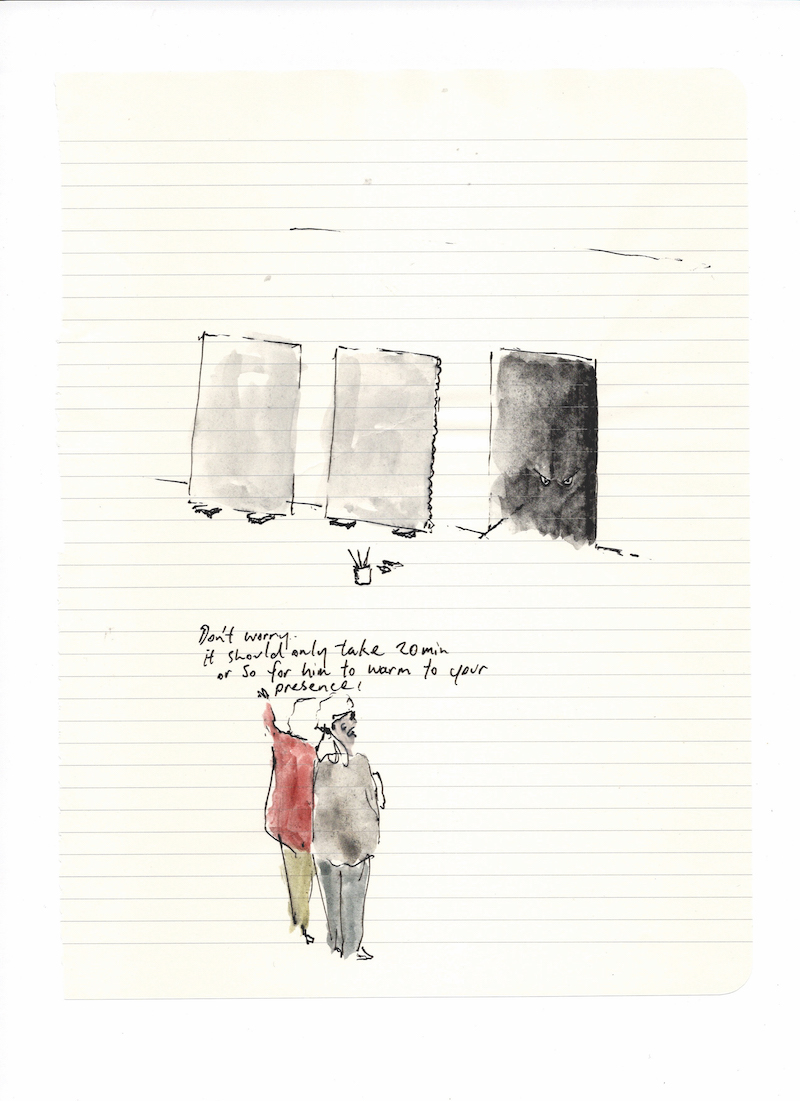 Don't worry..
it should only take 20min
or so for him to warm to your
presence!